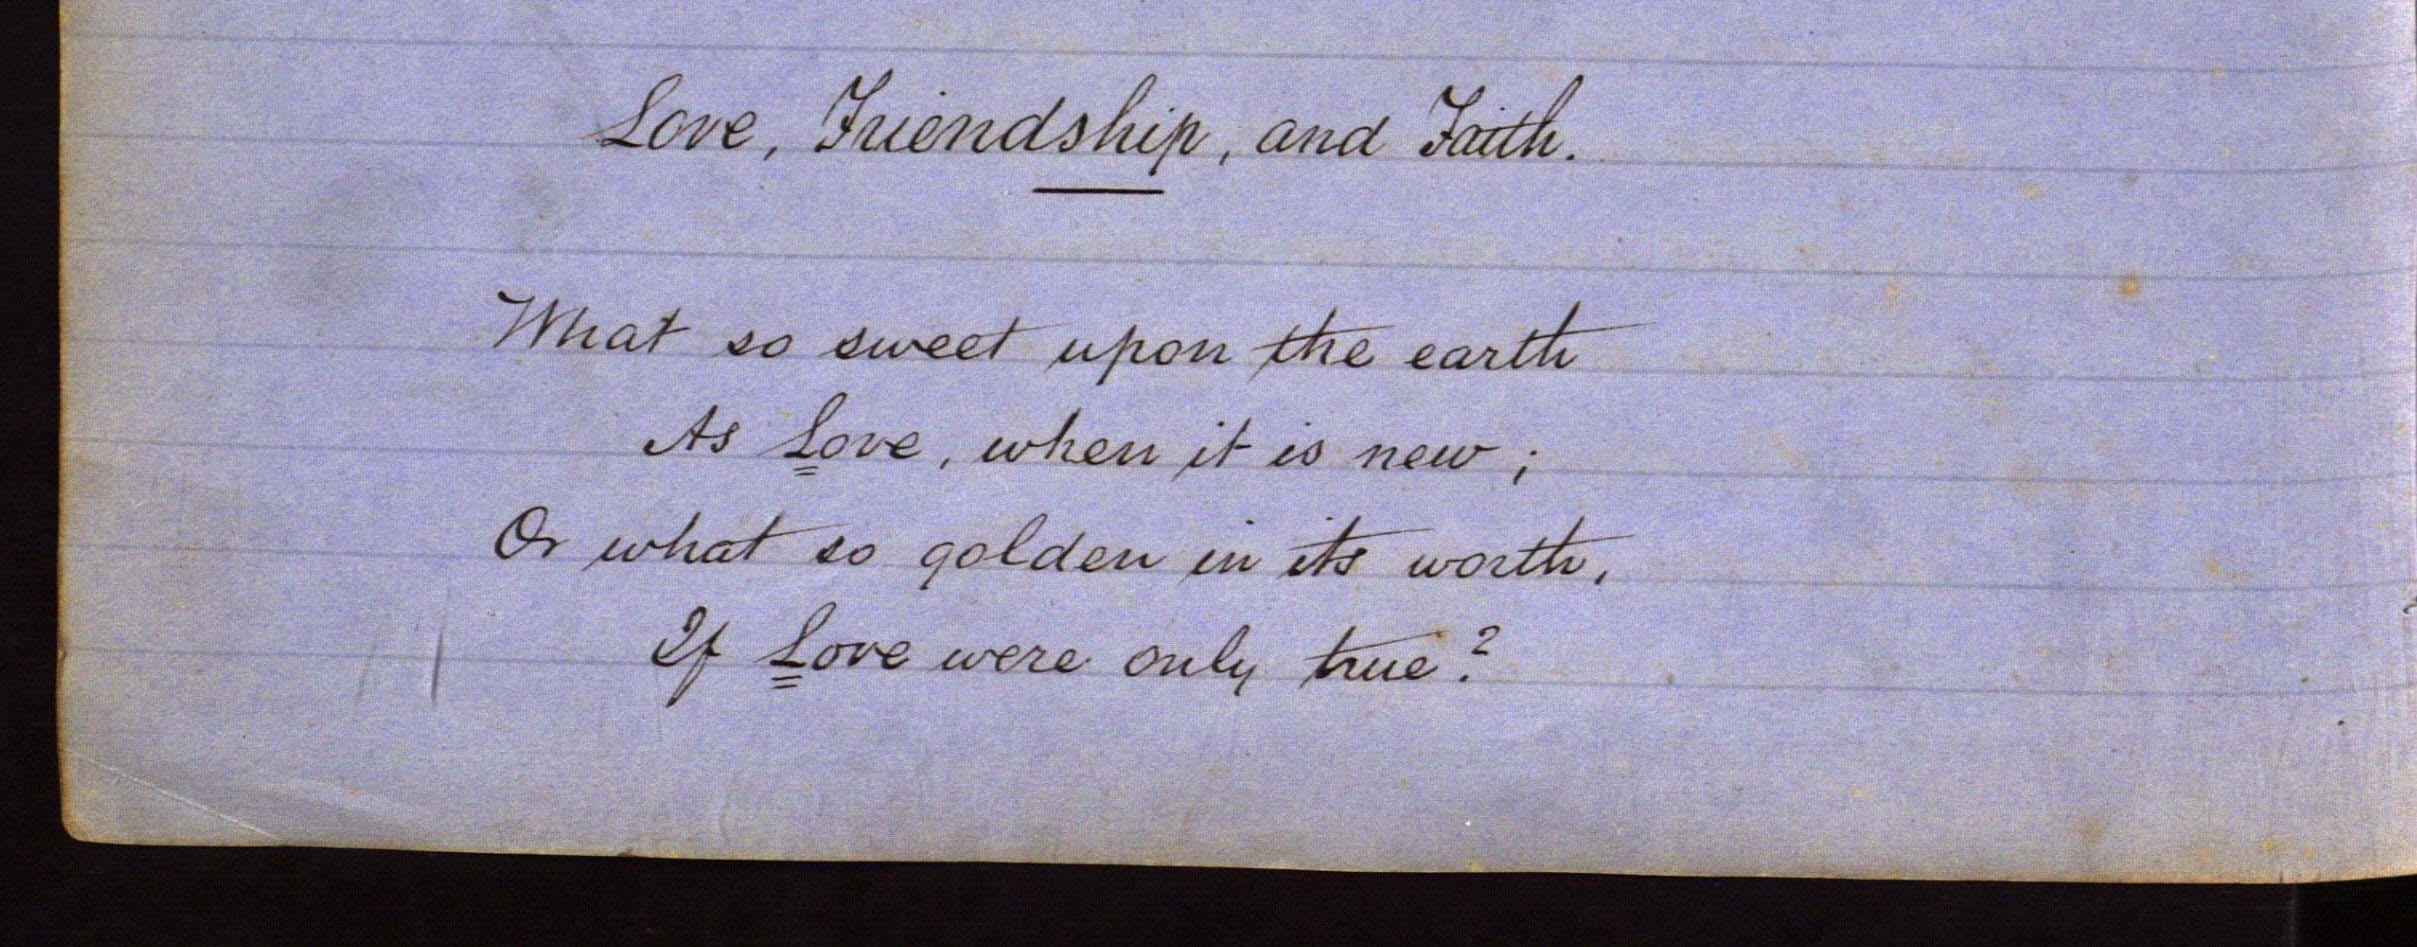 Love, Friendship, and Faith.
What so sweet upon the earth
As Love, when it is new;
Or what so golden in its worth,
If Love were only true?